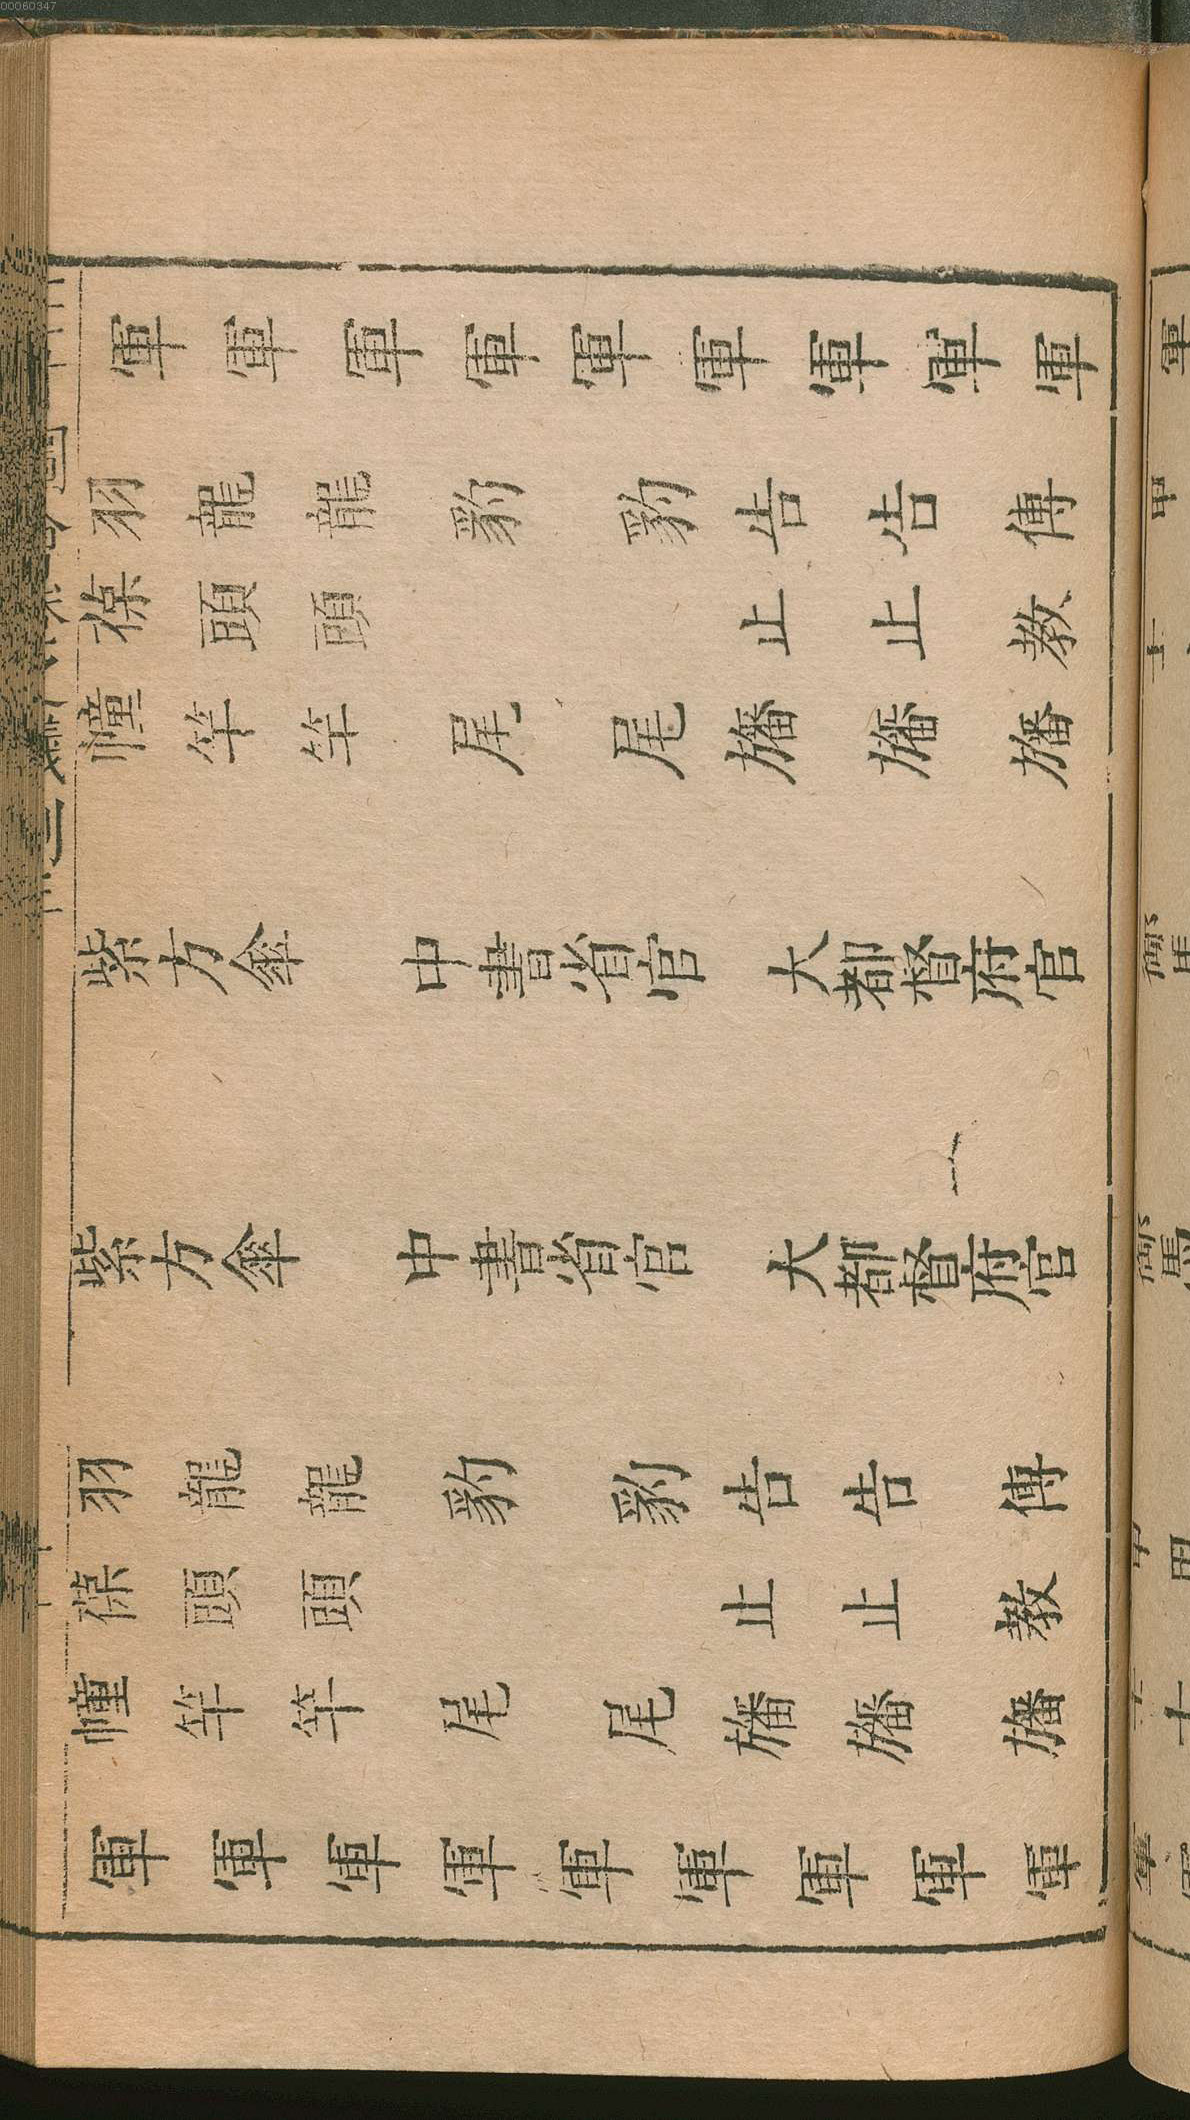 00060347
軍 軍 軍 軍 軍 軍 軍 軍 軍
羽葆幢
龍頭竿
龍頭竿
豹尾
豹尾
告止旛
告止旛
傳教旛
紫方傘
中書省官
大都督府官
紫方傘
中書省官
大都督府官
羽葆幢
龍頭竿
龍頭竿
豹尾
豹尾
告止旛
告止旛
傳教旛
軍 軍 軍 軍 軍 軍 軍 軍 軍